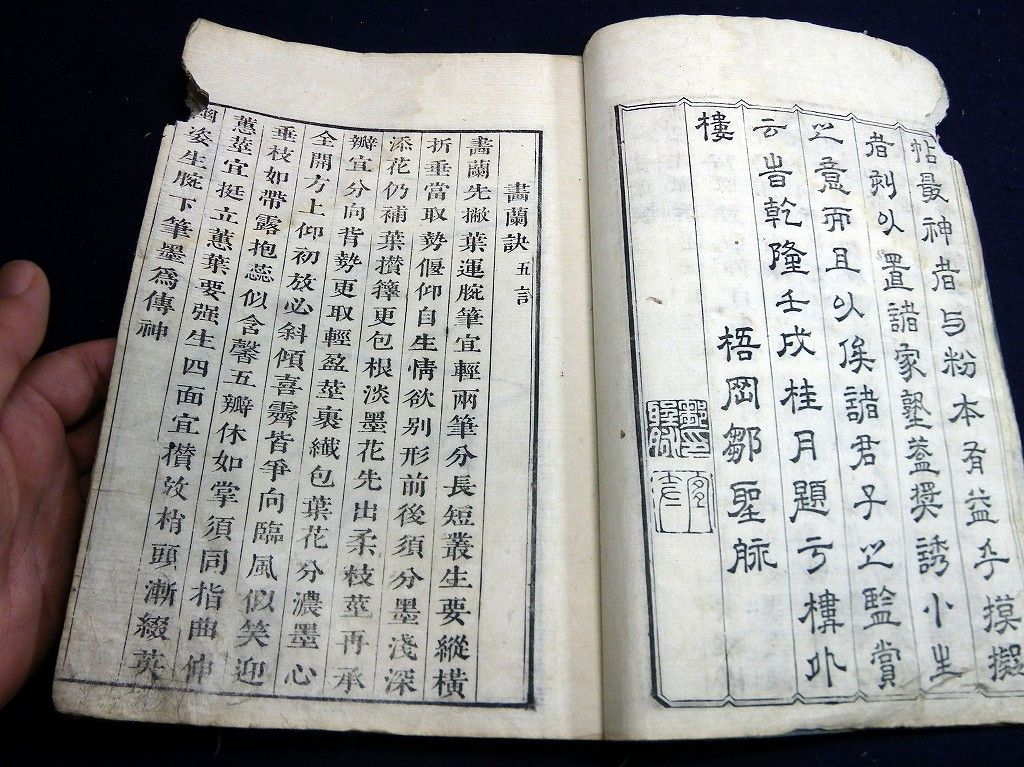 帖最神者与粉本有益乎摸擬
者剞以置諸家塾益奨誘小生
之意而且以俟諸君子之監賞
云旹乾隆壬戌桂月題亏樓外
樓
梧岡鄒聖脉
畵蘭訣五言
畵蘭先撇葉運腕筆宜輕兩筆分長短叢生要縱橫
折垂當取勢偃仰自生情欲别形前後須分墨淺深
添花仍補葉攢籜更包根淡墨花先出柔枝莖再承
瓣宜分向背勢更取輕盈莖裹纖包葉花分濃墨心
全開方上仰初放必斜傾喜霽皆爭向臨風似笑迎
垂枝如帶露抱蕊似含馨五瓣休如掌須同指曲伸
蕙莖宜挺立蕙葉要强生四面宜攅放梢頭漸綴英
幽姿生腕下筆墨爲傳神